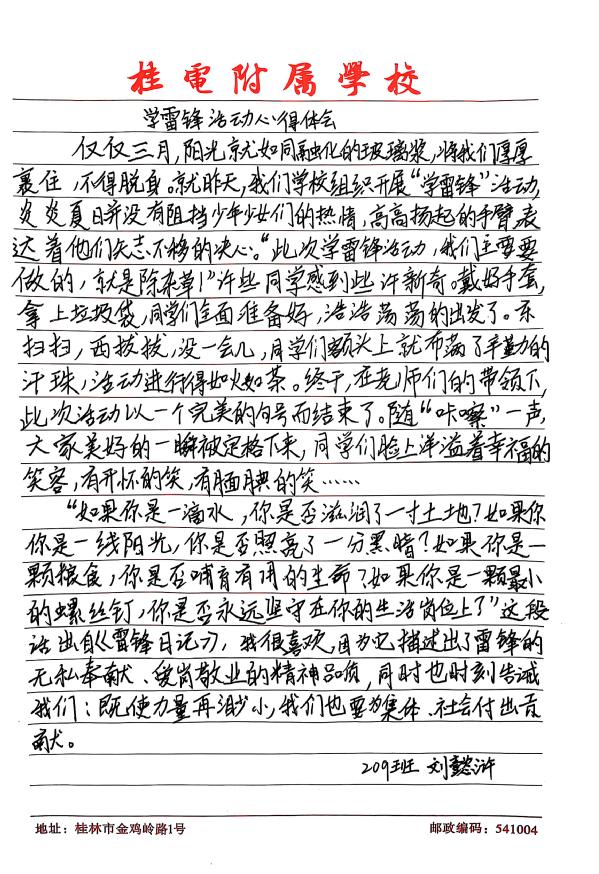 桂電附属學校
学雷锋活动心得体会
仅仅三月,阳光就如同融化的玻璃浆,将我们厚厚
裹住,不得脱身。就昨天,我们学校组织开展“学雷锋”活动,
炎炎夏日并没有阻挡少年少女们的热情,高高扬起的手臂表
达着他们矢志不移的决心。“此次学雷锋活动,我们主要要
做的,就是除杂草!”许些同学感到些许新奇。戴好手套,
拿上垃圾袋,同学们全面准备好,浩浩荡荡的出发了。东
扫扫,西拔拔,没一会儿,同学们额头上就布满了辛勤的
汗珠,活动进行得如火如茶。终于,在老师们的带领下,
此次活动以一个完美的句号而结束了。随“咔嚓”一声,
大家美好的一瞬被定格下来,同学们脸上洋溢着幸福的
笑容,有开怀的笑,有腼腆的笑……
“如果你是一滴水,你是否滋润了一寸土地?如果你
你是一线阳光,你是否照亮了一分黑暗?如果你是一
颗粮食,你是否哺育有用的生命?如果你是一颗最小
的螺丝钉,你是否永远坚守在你的生活岗位上了”这段
话出自《雷锋日记》,我很喜欢,因为它描述出了雷锋的
无私奉献、爱岗敬业的精神品质,同时也时刻告诫
我们:既使力量再渺小,我们也要为集体、社会付出贡
献。
209班 刘懿浒
地址:桂林市金鸡岭路1号 邮政编码:541004